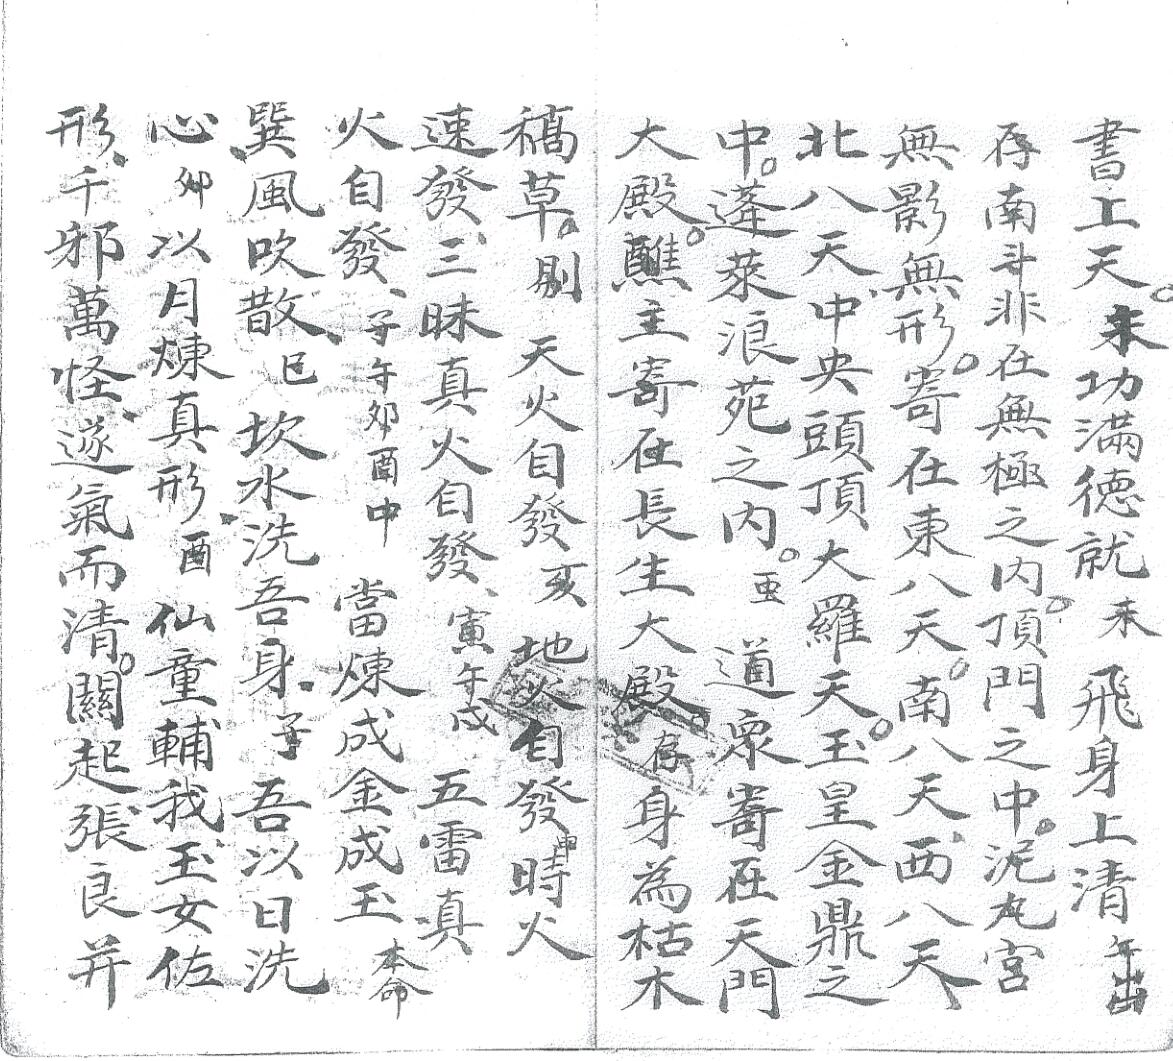 書上天。未功滿德就未飛身上清午出
存南斗非在無極之內。頂門之中。泥丸宮
無影無形。寄在東八天。南八天、西八天、
北八天、中央頭頂大羅天。玉皇金鼎之
中。蓬萊浪苑之內。 道眾寄在天門
大殿。醮主寄在長生大殿。存身為枯木
稿草。剔天火自發亥地火自發申時火
速發、三昧真火自發、寅午戌五雷真
火自發、子午卯酉中當煉成金成玉本命
巽風吹散、巳坎水洗吾身。子吾以日洗
心、卯以月煉真形、酉仙童輔我、玉女佐
形、千邪萬怪、逐氣而清。關起張良并